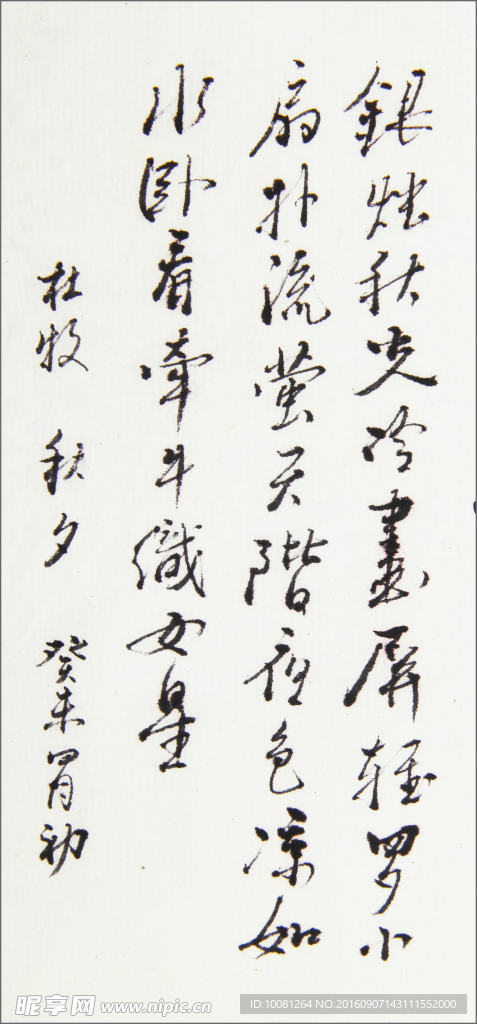 銀烛秋光冷畫屏輕罗小
扇扑流萤天階夜色凉如
水卧看牽牛織女星
杜牧 秋夕 癸未
昵享网 www.nipic.cn
ID:10081264 NO:20160907143111552000